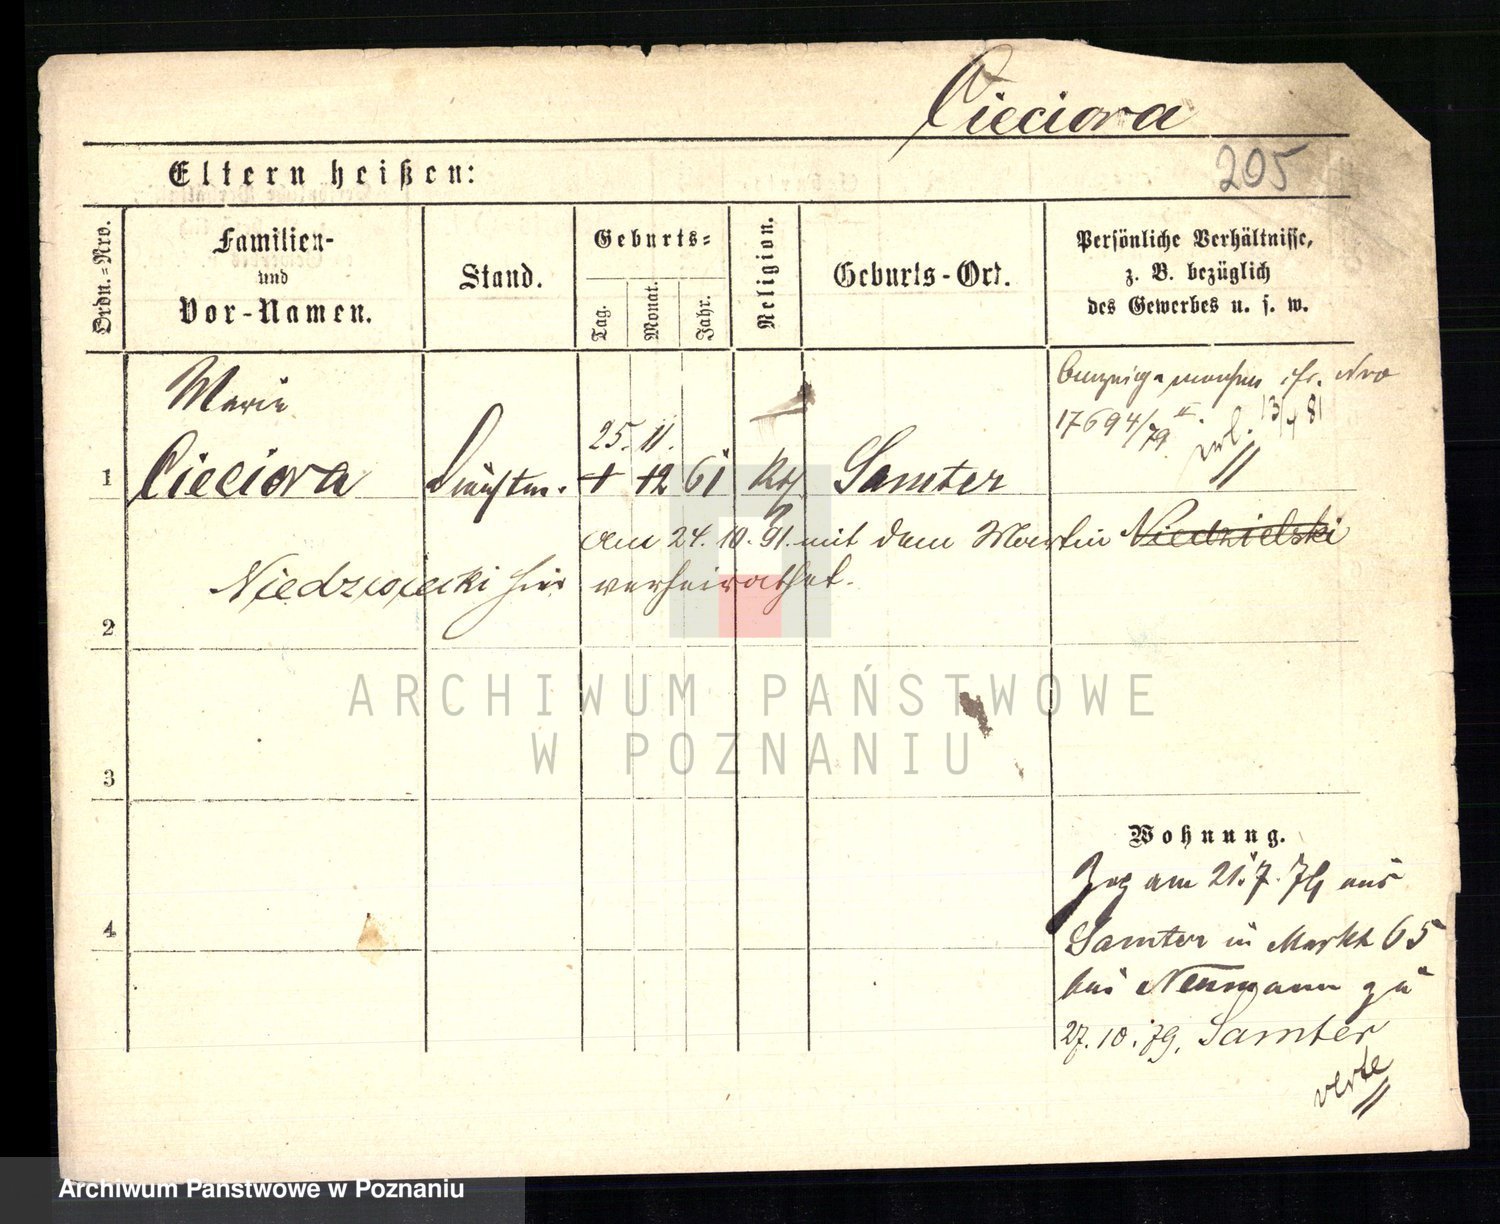 Cieciora
205
Eltern heißen:
Ordn.-Nro.
Familien-
und
Vor-Namen.
Stand.
Geburts-
Tag.
Monat.
Jahr.
Religion.
Geburts-Ort.
Persönliche Verhältnisse,
z. B. bezüglich
des Gewerbes u. s. w.
Marie
Nro
25. 11.
17694/79 13/7 81
1 Cieciora 1 12 61 Kth Samter
Am 24. 10. 91. mit dem Martin Niedzielski
Niedzwiecki hier verheirathet.
2
3
Wohnung.
Zog am 21. 7. 79 aus
4
Samter in Markt 65
bei Neumann zu
27. 10. 79. Samter
verte
ARCHIWUM PAŃSTWOWE
W POZNANIU
Archiwum Państwowe w Poznaniu